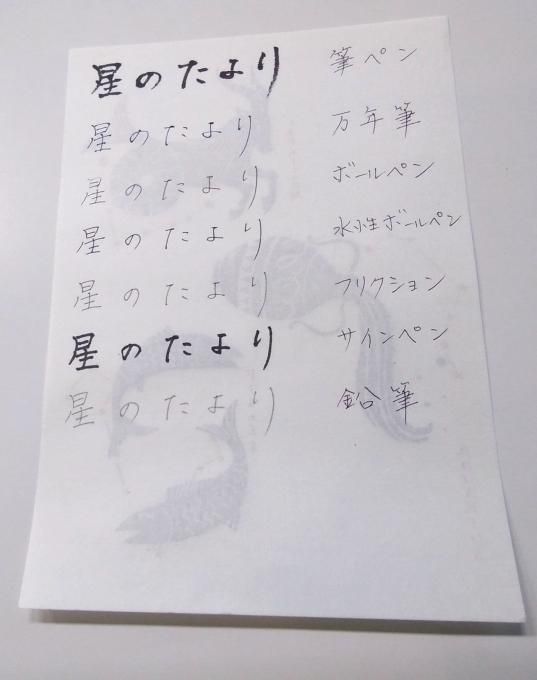 星のたより 筆ペン
星のたより 万年筆
星のたより ボールペン
星のたより 水性ボールペン
星のたより フリクション
星のたより サインペン
星のたより 鉛筆